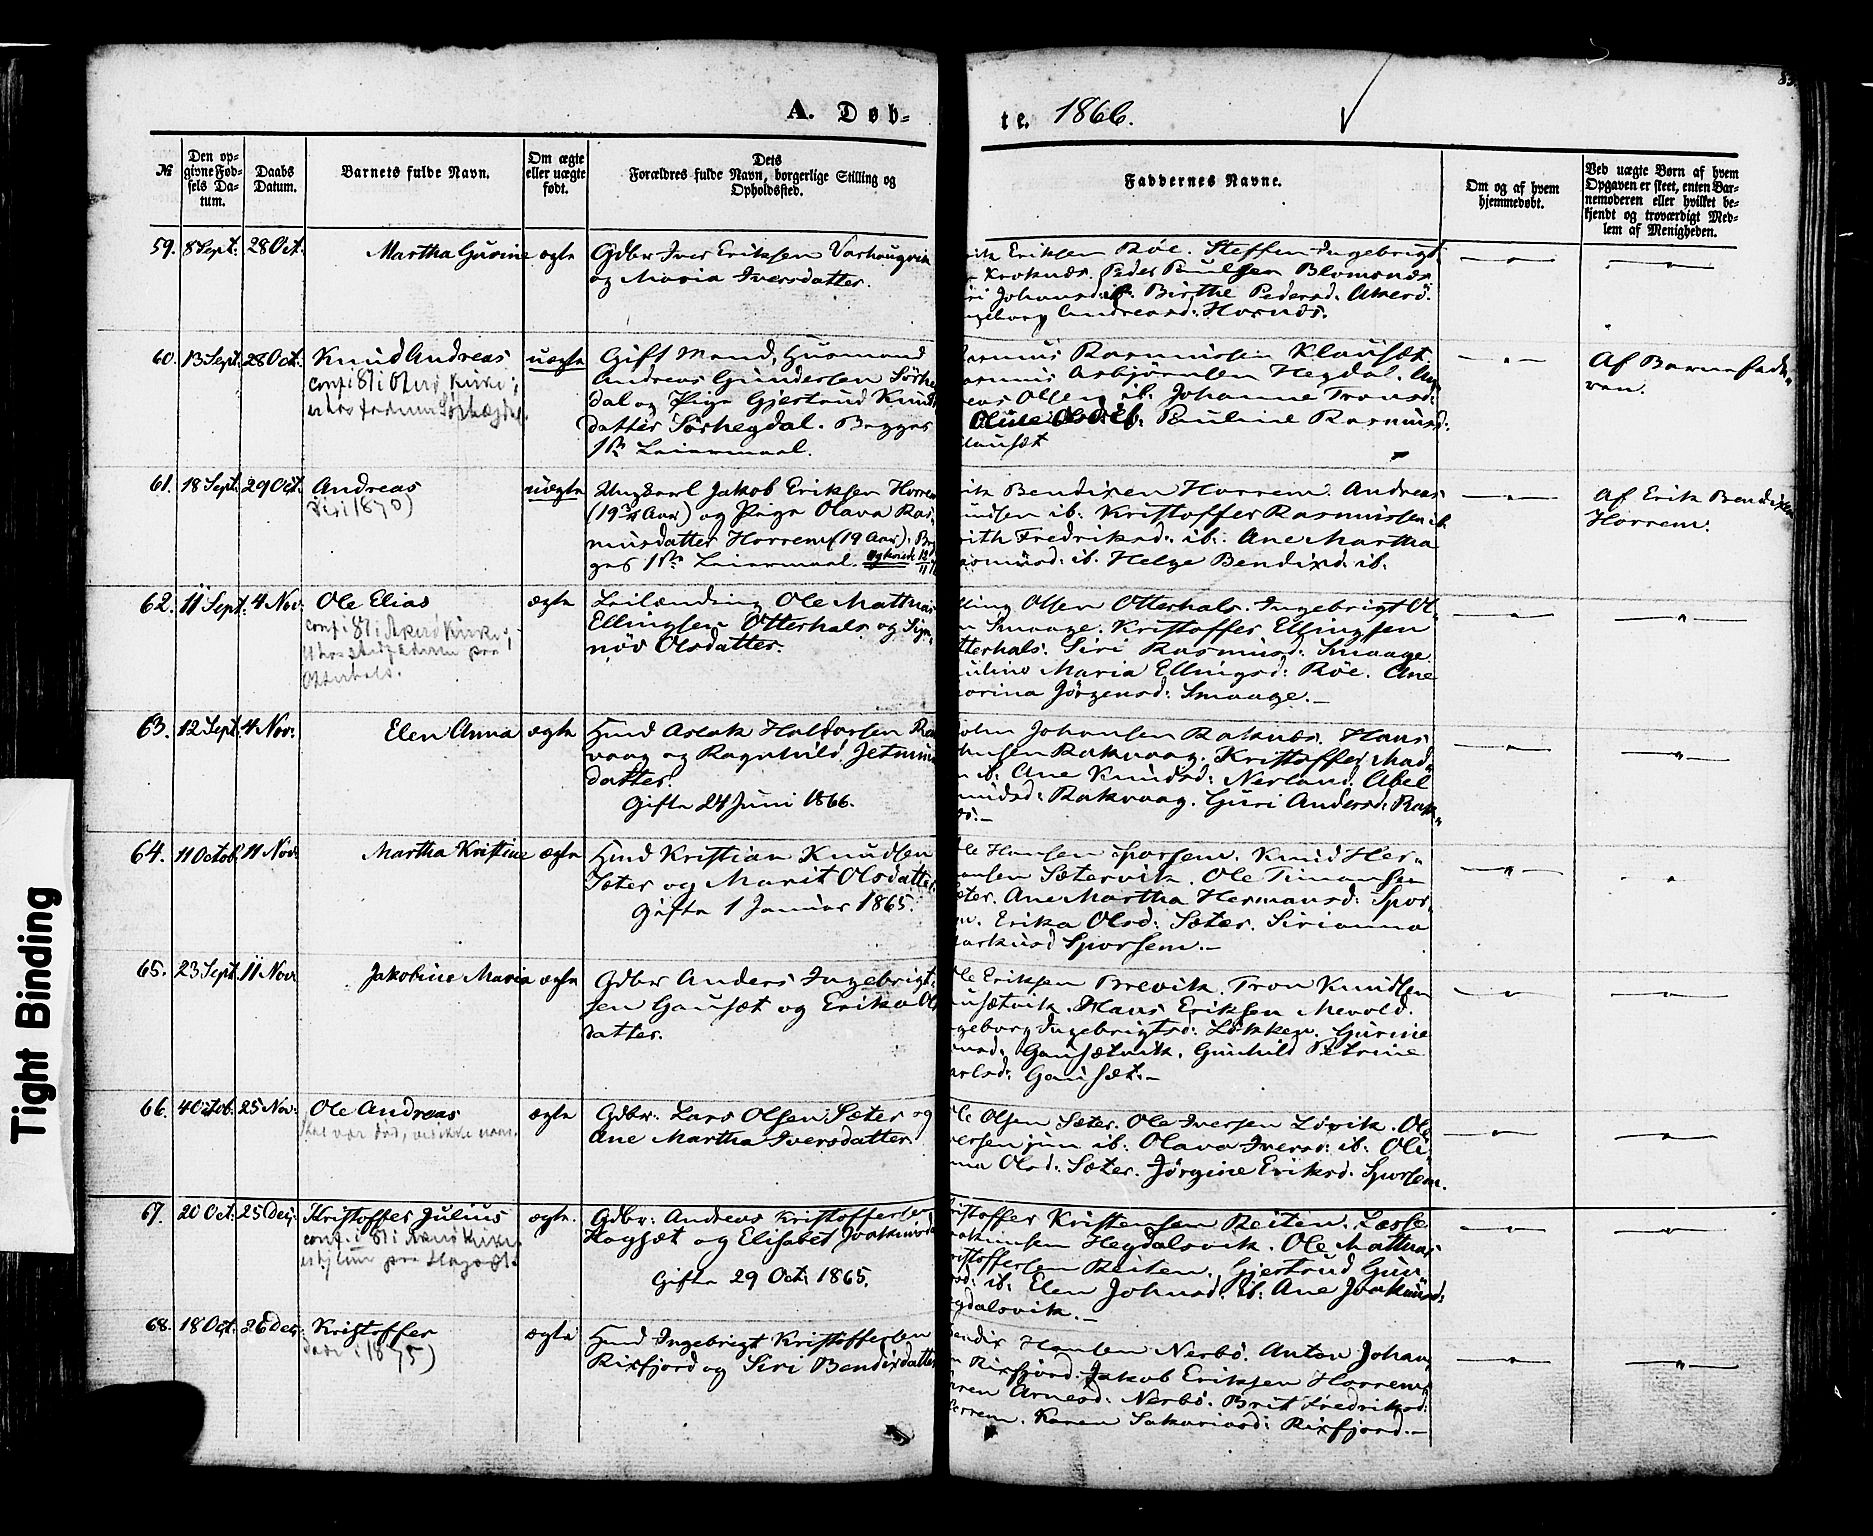 A. Døb-
te. 1866.
№
Den op-
givne Fød-
sels Da-
tum.
Daabs
Datum.
Barnets fulde Navn.
Om ægte
eller uægte
født.
Dets
Forældres fulde Navn, borgerlige Stilling og
Opholdssted.
Faddernes Navne.
Om og af hvem
hjemmedøbt.
Ved uægte Børn af hvem
Opgaven er skeet, enten Bar-
nemoderen eller hvilket be-
kjendt og troværdigt Med-
lem af Menigheden.
59. 8 Sept. 28 Oct. Martha Gurine ægte
Gdbr Iver Eriksen Varhougvik
og Maria Iversdatter.
Eriksen Röe. Steffen Ingebrigt
Kroknæs. Peder Paulsen Blomsnæs
Johansd: ib: Birthe Pedersd: Akerö.
Andreasd: Hornæs.
60. 13 Sept. 28 Oct. Knud Andreas uægte
conf: i 81 i Akerö Kirke;
er hos faderen Sørhegdal
Gift Mand, Husmand
Andreas Gundersen Sörheg
dal og Pige Gjertrud Knuds
datter Sörhegdal. Begges
1ste Leiermaal.
Rasmus Rasmussen Klausæt
Asbjörnsen Hegdal.
Olsen ib. Johanne Tronsd:
Oline Olsd: ib. Pauline Rasmusd:
Klausæt
Af Barnefade-
ren.
61. 18 Sept. 29 Oct. Andreas uægte
1870)
Ungkarl Jakob Eriksen Horrem
(19 3/4 Aar) og Pige Olava Ras-
musdatter Horrem (19 Aar). Beg
ges 1ste Leiermaal.
Erik Bendixen Horrem. Andreas
ib. Kristoffer Rasmussen ib.
Fredriksd: ib: Ane Martha
Rasmusd: ib. Helge Bendixd: ib.
Af Erik Bendixen
Horrem.
62. 11 Sept. 4 Nov. Ole Elias ægte
conf: i 81 i Akerö Kirke;
Otterhals.
Leilænding Ole Mathias
Ellingsen Otterhals og Syn-
növ Olsdatter.
Elling Olsen Otterhals. Ingebrigt Ol-
Smaage. Kristoffer Ellingsen
Otterhals. Siri Rasmusd: Smaage.
Pauline Maria Ellingsd: Röe. Ane
Jörgensd: Smaage.—
63. 12 Sept. 4 Nov: Elen Anna ægte
Hmd Aslak Haldorsen Rak
vaag og Ragnhild Jetmund
datter.
Gifte 24 Juni 1866.
Johansen Raknæs. Hans
Rakvaag. Kristoffer Mad-
ib. Ane Knudsd: Nerland. Abel
Rakvaag. Guri Andersd: Rak-
64. 11 Octob: 11 Nov: Martha Kristine ægte
Hmd Kristian Knudsen
Sæter og Marit Olsdatter
Gifte 1 Januar 1865.
Ole Hansen Sporsem. Knud Her-
mansen Sætervik. Ole Timansen
Sæter. Ane Martha Hermansd: Spor-
Erika Olsd: Sæter. Sirianna
Markusd Sporsem.—
65. 23 Sept. 11 Nov Jakobine Maria ægte
Gdbr Anders Ingebrigt-
sen Gausæt og Erika Ols
datter.
Ole Eriksen Brevik. Tron Knudsen
Gausætvik. Hans Eriksen Mevold.
Ingeborg Ingebrigtsd: Løkken. Gurine
Gausætvik. Gunhild Petrine
Gausæt.—
66. 4 Octob: 25 Nov: Ole Andreas ægte
skal var død, ved ikke naar.
Gdbr: Lars Olsen Sæter og
Ane Martha Iversdatter.
Ole Olsen Sæter. Ole Iversen Lövik. Ole
Iversen jun ib: Olava Iversd: ib: Oli-
Olsd: Sæter. Jörgine Eriksd: Sporsem.
67. 20 Oct: 25 Dec: Kristoffer Julius ægte.
conf: i 81 i Akerö Kirke
er hjemme paa Hagsæt.
Gdbr: Andreas Kristoffersen
Hagsæt og Elisabet Joakimsd
Gifte 29 Oct: 1865.
Kristoffer Kristensen Reiten. Lasse
Joakimsen Hegdalsvik. Ole Mathias
Kristoffersen Reiten. Gjertrud Gun
ib: Elen Johnsd: ib: Ane Joakimsd:
Hegdalsvik.—
68. 18 Oct: 26 Dec: Kristoffer ægte
død i 1875)
Hmd Ingebrigt Kristoffersen
Rixfjord og Siri Bendixdatter
Bendix Hansen Nerbö. Anton Johan-
Rixfjord. Jakob Eriksen Horrem.
Arnesd: Nerbö. Brit Fredriksd:
Horrem. Karen Sakariasd: Rixfjord.—
Tight Binding